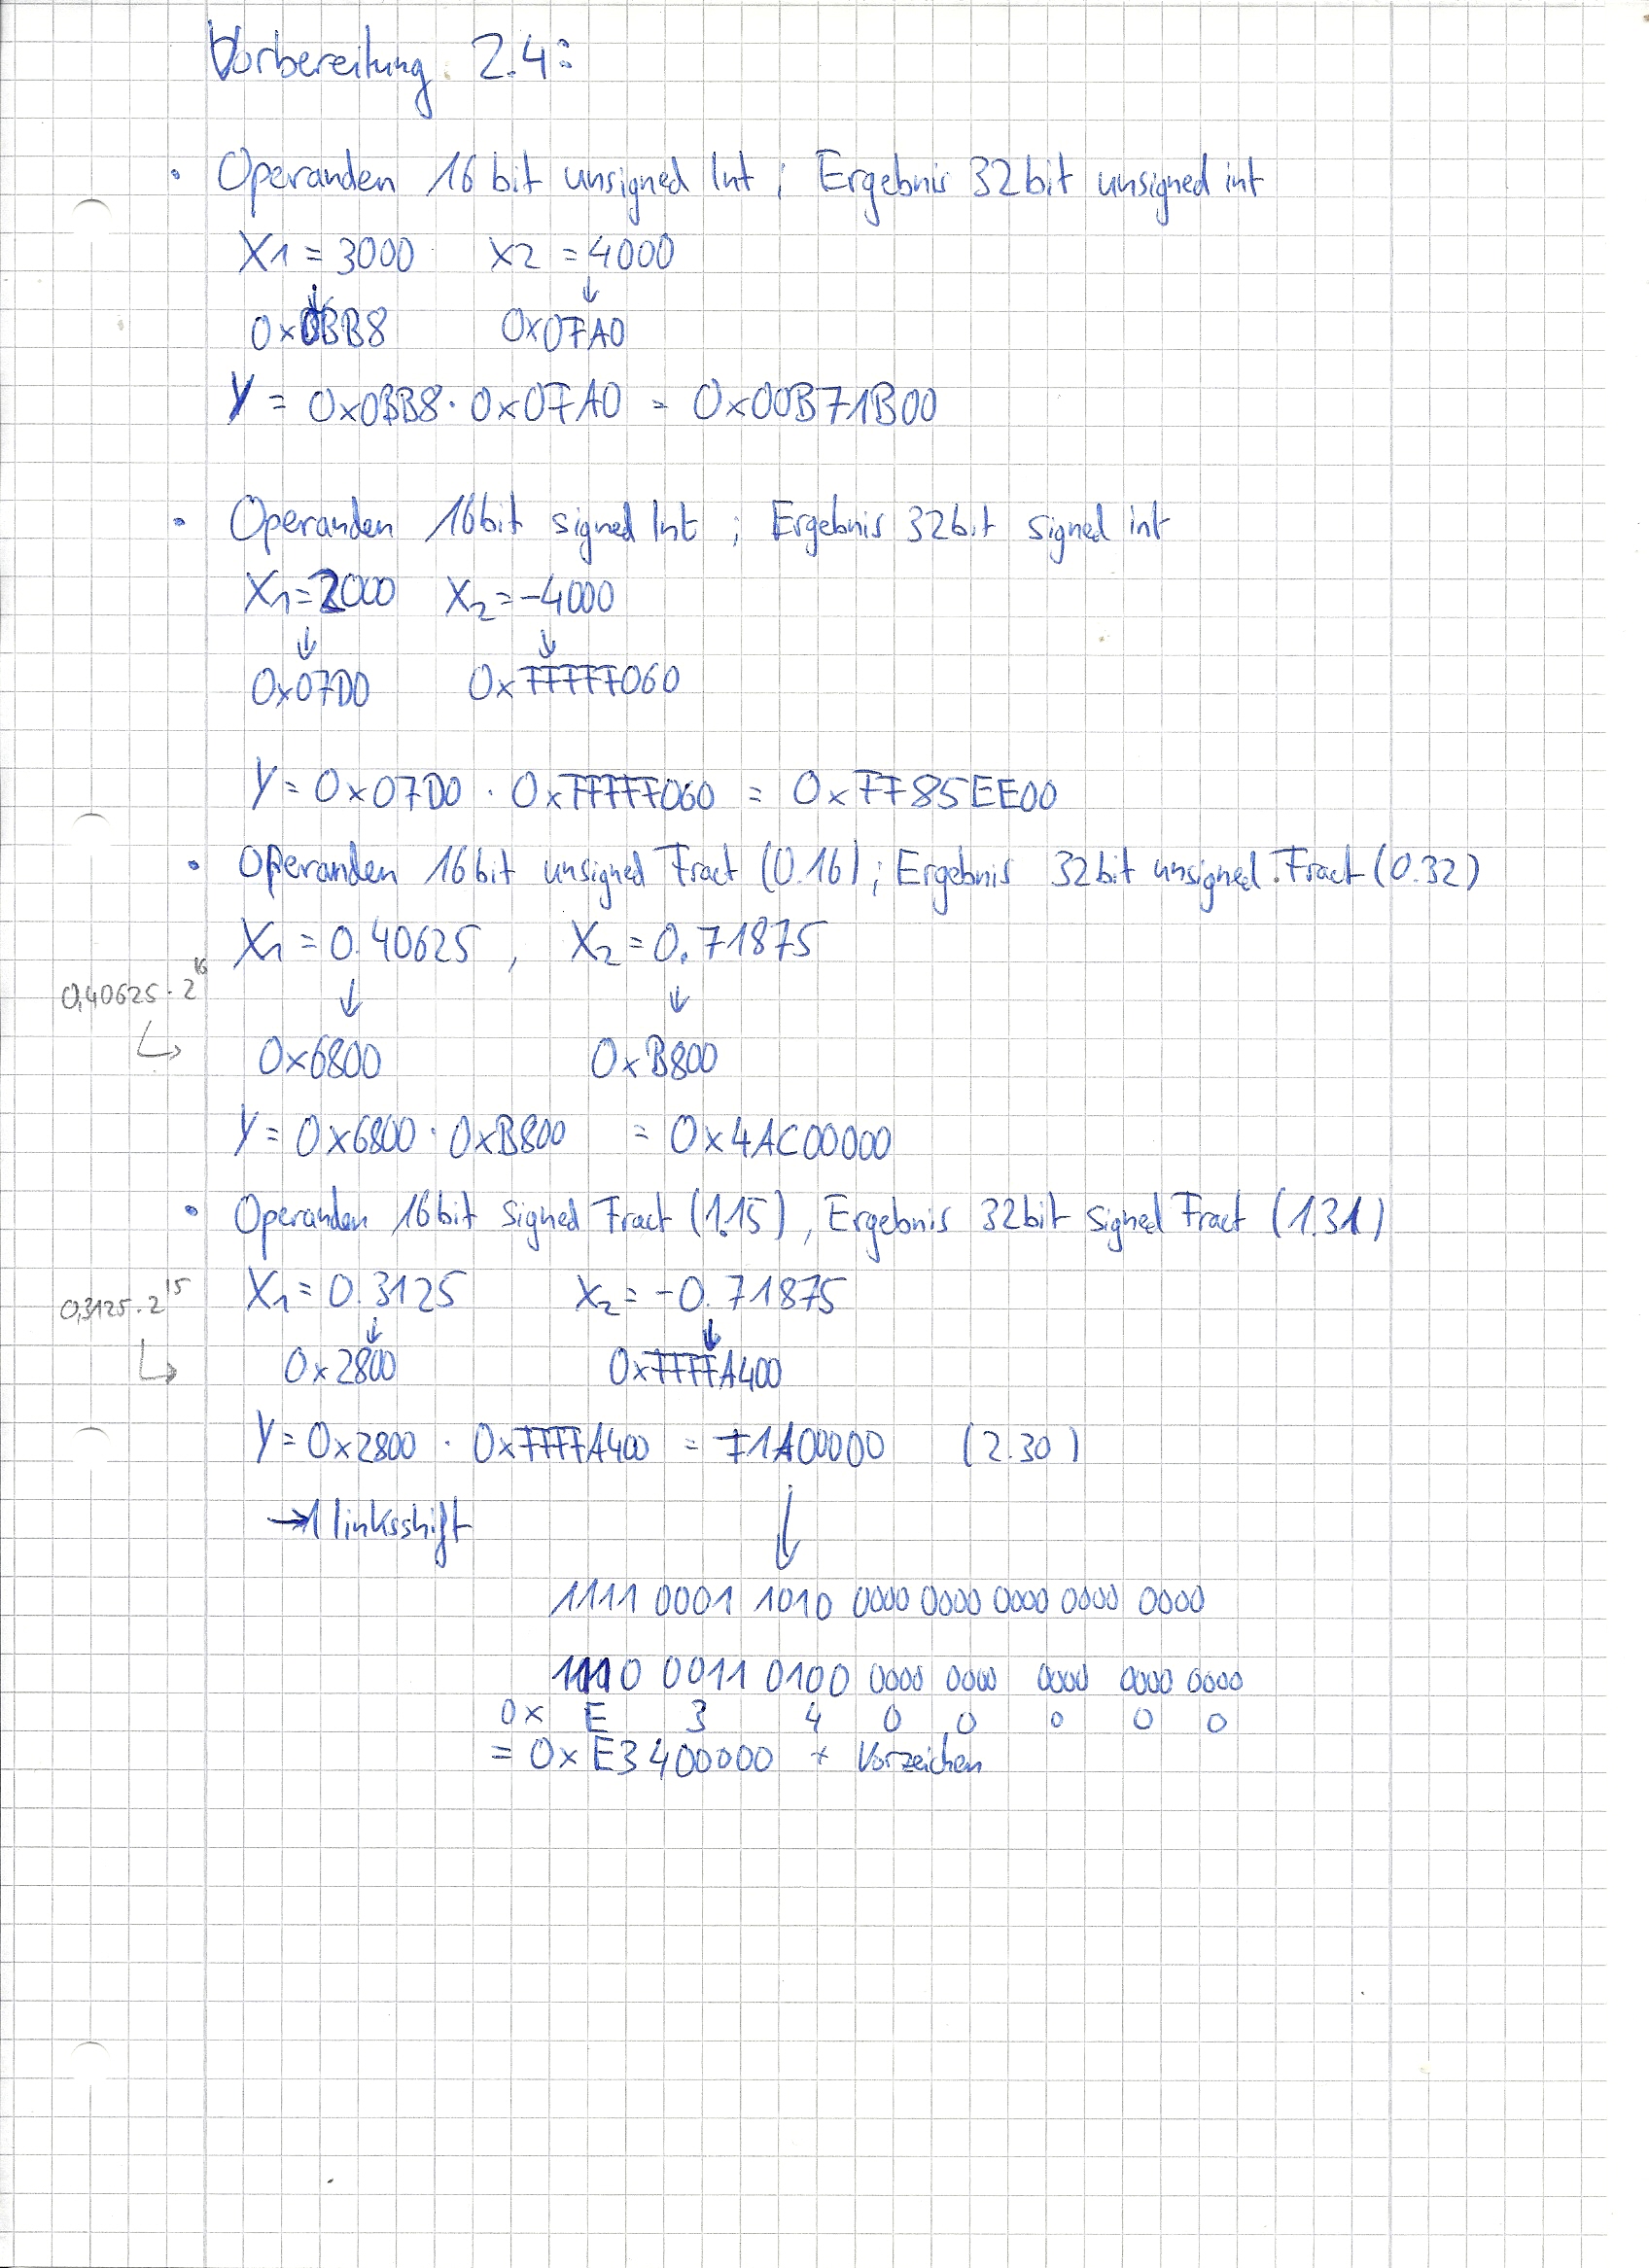 Vorbereitung 2.4:
• Operanden 16 bit unsigned Int ; Ergebnis 32bit unsigned int
X1 = 3000 X2 = 4000
↓ ↓
0x0BB8 0x0FA0
Y = 0x0BB8 · 0x0FA0 = 0x00B71B00
• Operanden 16bit signed Int ; Ergebnis 32bit signed int
X1=2000 X2=-4000
↓ ↓
0x07D0 0xFFFFF060
Y = 0x07D0 · 0xFFFFF060 = 0xFF85EE00
• Operanden 16bit unsigned Fract (0.16) ; Ergebnis 32bit unsigned Fract (0.32)
X1 = 0.40625 , X2 = 0.71875
0,40625 · 2^16 ↓ ↓
↳ 0x6800 0xB800
Y = 0x6800 · 0xB800 = 0x4AC00000
• Operanden 16bit Signed Fract (1.15) , Ergebnis 32bit Signed Fract (1.31)
0,3125 · 2^15 X1 = 0.3125 X2 = -0.71875
↓ ↓
↳ 0x2800 0xFFFFA400
Y = 0x2800 · 0xFFFFA400 = F1A00000 (2.30)
→ 1 linksshift ↓
1111 0001 1010 0000 0000 0000 0000 0000
1110 0011 0100 0000 0000 0000 0000 0000
0x E 3 4 0 0 0 0 0
= 0xE3400000 + Vorzeichen